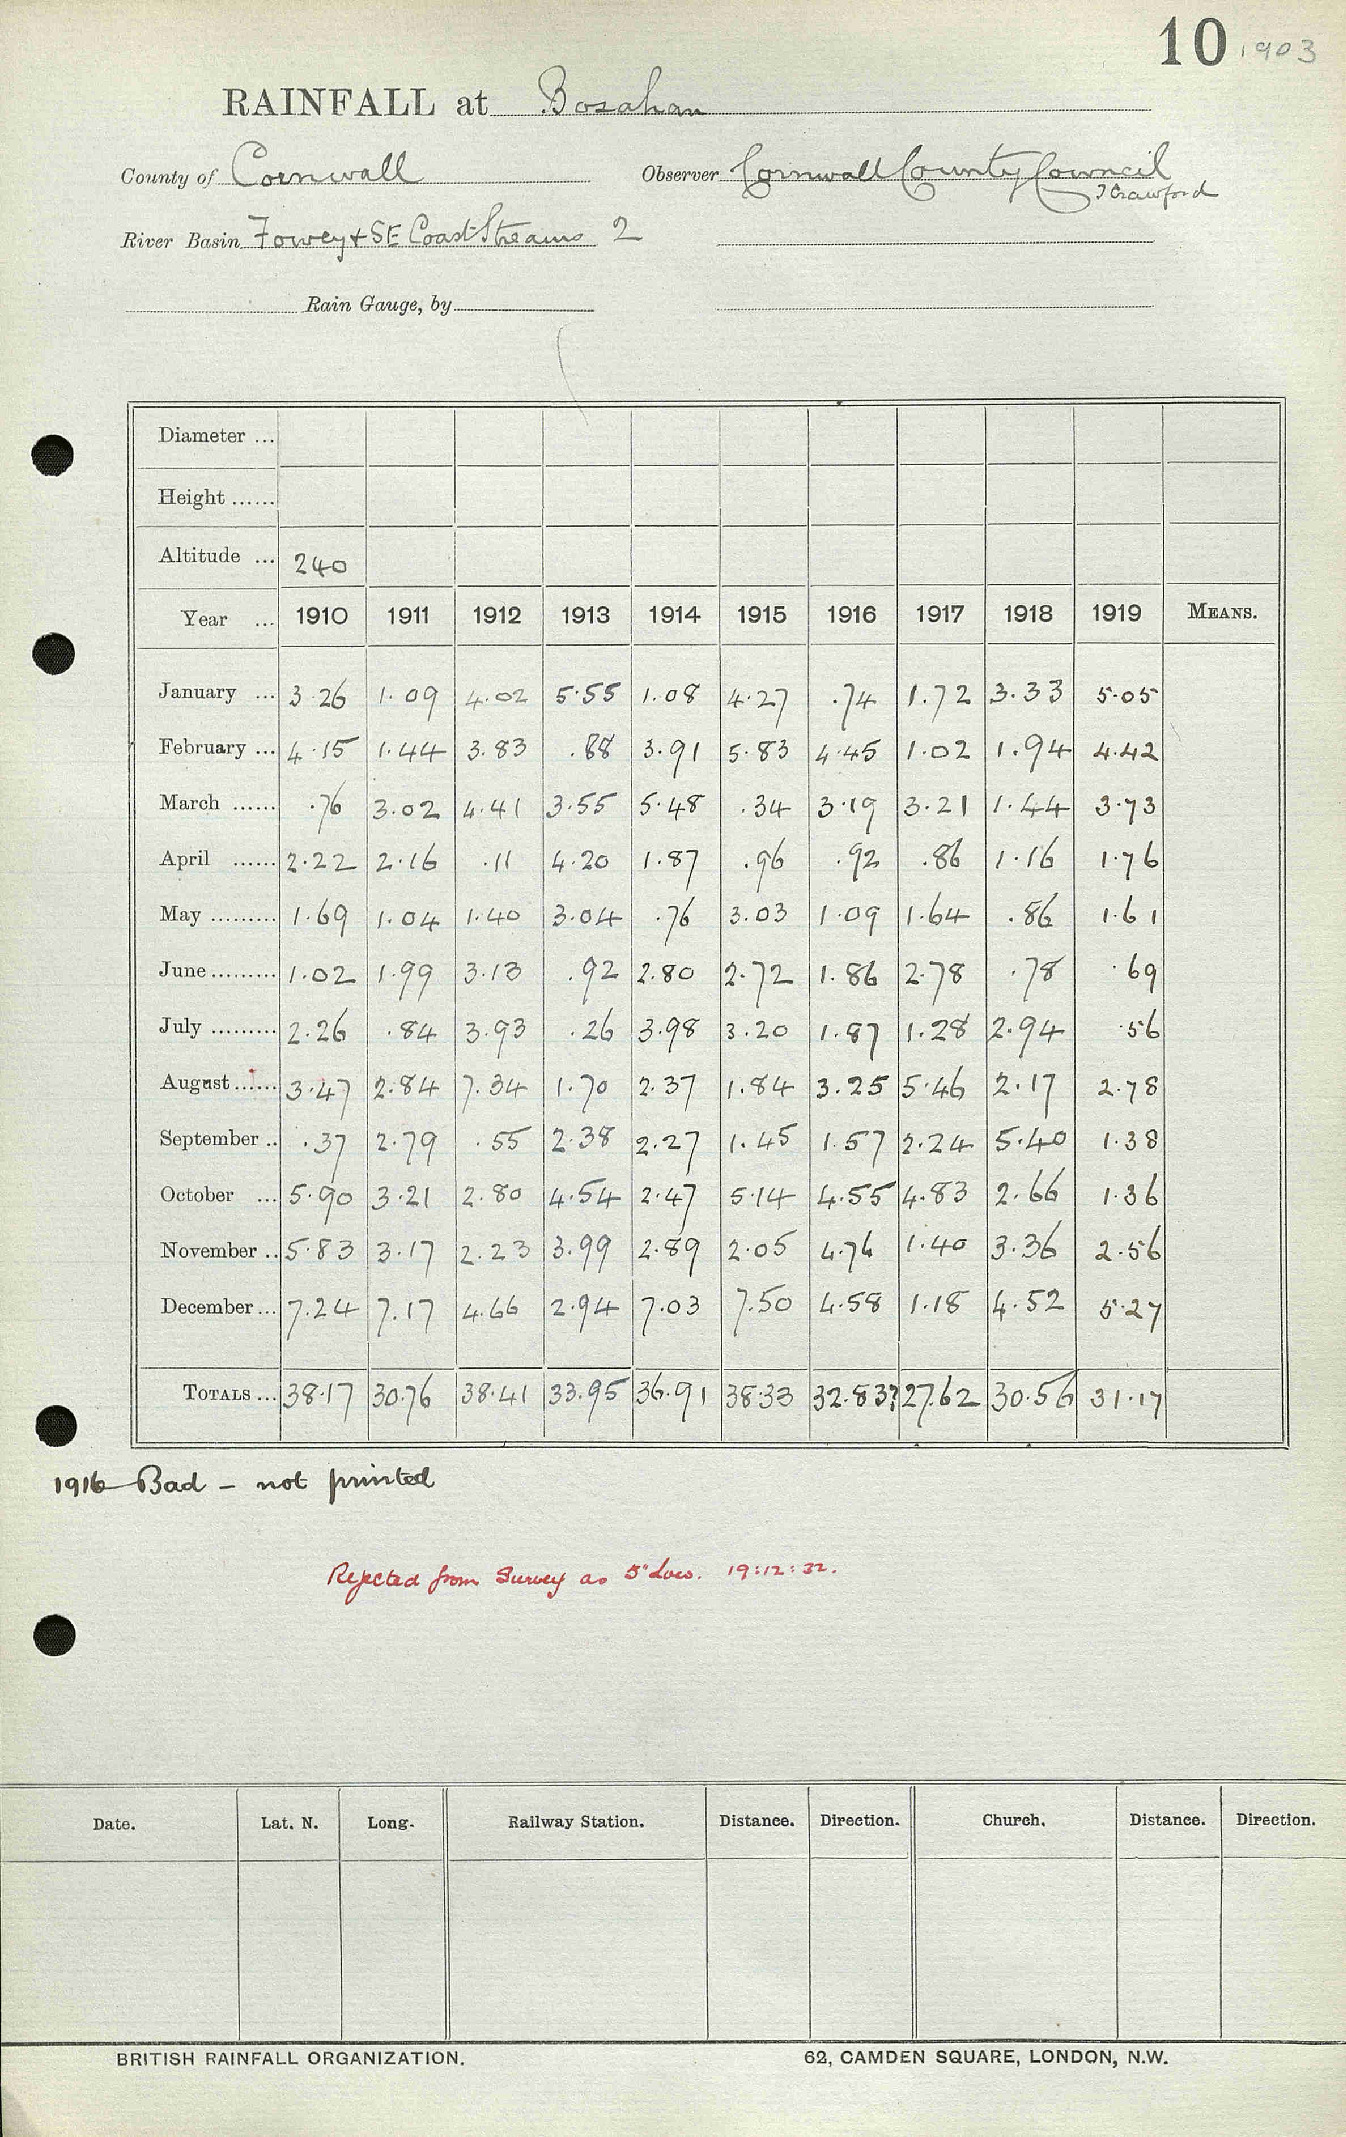 10 1903
RAINFALL at Bosahan
County of Cornwall Observer Cornwall County Council
J Crawford
River Basin Fowey + SE Coast Streams 2
Rain Gauge, by
Diameter ...
Height ......
Altitude ... 240
Year ... 1910 1911 1912 1913 1914 1915 1916 1917 1918 1919 MEANS.
January ... 3.26 1.09 4.02 5.55 1.08 4.27 .74 1.72 3.33 5.05
February ... 4.15 1.44 3.83 .88 3.91 5.83 4.45 1.02 1.94 4.42
March ...... .76 3.02 4.41 3.55 5.48 .34 3.19 3.21 1.44 3.73
April ...... 2.22 2.16 .11 4.20 1.87 .96 .92 .86 1.16 1.76
May ......... 1.69 1.04 1.40 3.04 .76 3.03 1.09 1.64 .86 1.61
June ......... 1.02 1.99 3.13 .92 2.80 2.72 1.86 2.78 .78 .69
July ......... 2.26 .84 3.93 .26 3.98 3.20 1.87 1.28 2.94 .56
August ...... 3.47 2.84 7.34 1.70 2.37 1.84 3.25 5.46 2.17 2.78
September .. .37 2.79 .55 2.38 2.27 1.45 1.57 2.24 5.40 1.38
October ... 5.90 3.21 2.80 4.54 2.47 5.14 4.55 4.83 2.66 1.36
November .. 5.83 3.17 2.23 3.99 2.89 2.05 4.76 1.40 3.36 2.56
December ... 7.24 7.17 4.66 2.94 7.03 7.50 4.58 1.18 4.52 5.27
TOTALS ... 38.17 30.76 38.41 33.95 36.91 38.33 32.83? 27.62 30.56 31.17
1916 Bad - not printed
Rejected from Survey as 5" Low. 19:12:32.
Date. Lat. N. Long. Railway Station. Distance. Direction. Church. Distance. Direction.
BRITISH RAINFALL ORGANIZATION. 62, CAMDEN SQUARE, LONDON, N.W.